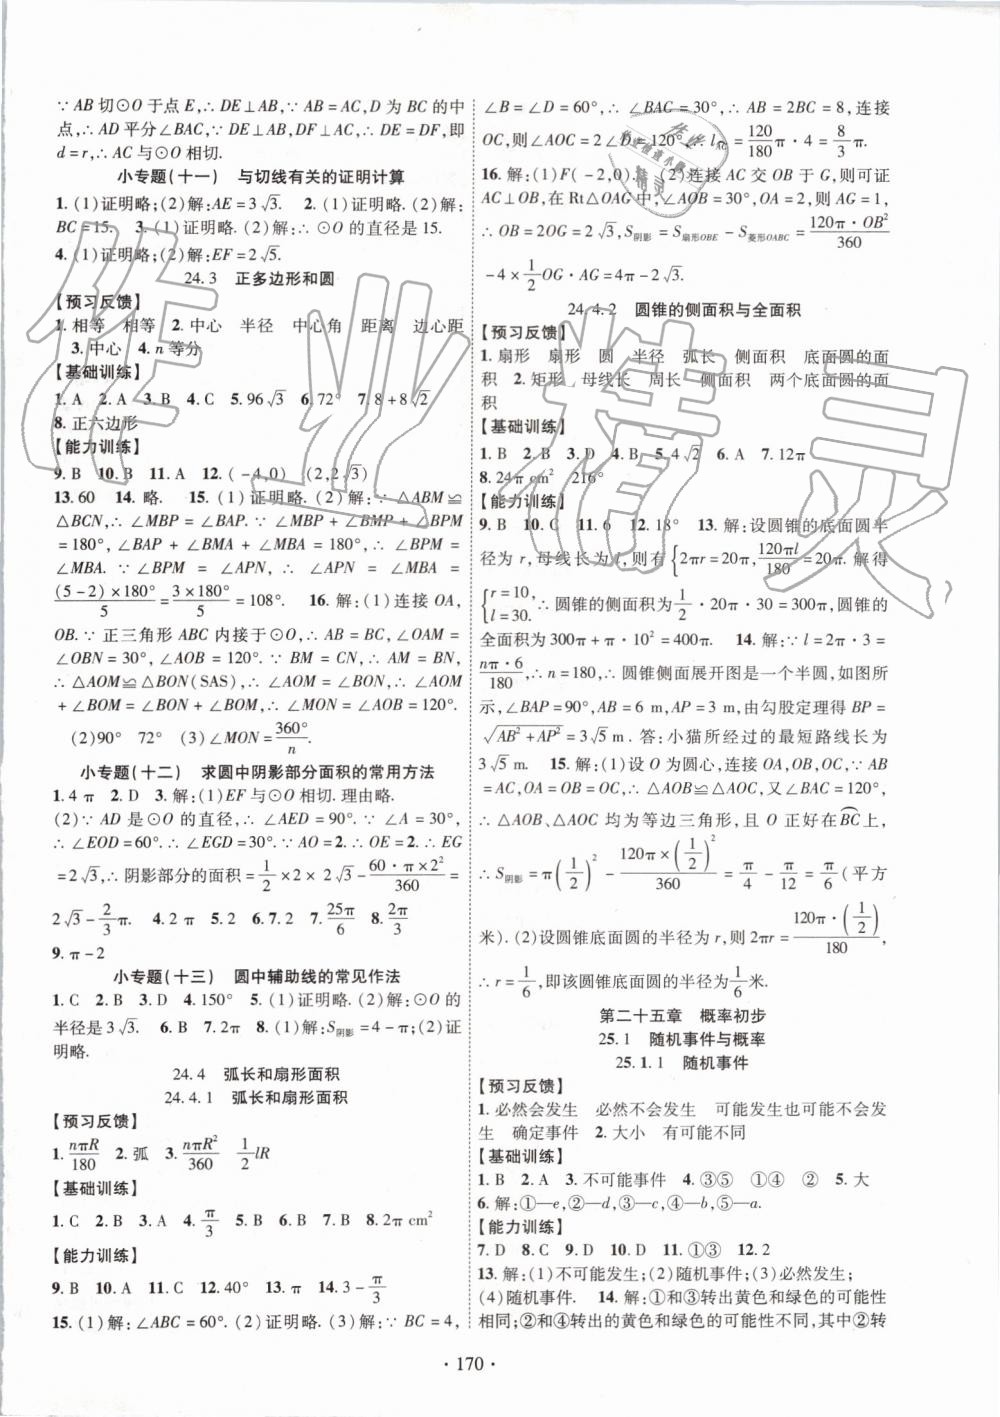 ∵AB切⊙O于点E,∴DE⊥AB,∵AB=AC,D为BC的中
点,∴AD平分∠BAC,∵DE⊥AB,DF⊥AC,∴DE=DF,即
d=r,∴AC与⊙O相切.
小专题(十一) 与切线有关的证明计算
1.(1)证明略;(2)解:AE=3√3. 2.(1)证明略.(2)解:
BC=15. 3.(1)证明略.(2)解:⊙O的直径是15.
4.(1)证明略;(2)解:EF=2√5.
24.3 正多边形和圆
【预习反馈】
1.相等 相等 2.中心 半径 中心角 距离 边心距
3.中心 4.n等分
【基础训练】
1.A 2.A 3.B 4.C 5.96√3 6.72° 7.8+8√2
8.正六边形
【能力训练】
9.B 10.B 11.A 12.(-4,0) (2,2√3)
13.60 14.略. 15.(1)证明略.(2)解:∵△ABM≌
△BCN,∴∠MBP=∠BAP.∵∠MBP+∠BMP+∠BPM
=180°,∠BAP+∠BMA+∠MBA=180°,∴∠BPM=
∠MBA.∵∠BPM=∠APN,∴∠APN=∠MBA=
(5-2)×180°/5=3×180°/5=108°. 16.解:(1)连接OA,
OB.∵正三角形ABC内接于⊙O,∴AB=BC,∠OAM=
∠OBN=30°,∠AOB=120°.∵BM=CN,∴AM=BN,
∴△AOM≌△BON(SAS),∴∠AOM=∠BON,∴∠AOM
+∠BOM=∠BON+∠BOM,∴∠MON=∠AOB=120°.
(2)90° 72° (3)∠MON=360°/n.
小专题(十二) 求圆中阴影部分面积的常用方法
1.4π 2.D 3.解:(1)EF与⊙O相切.理由略.
(2)∵AD是⊙O的直径,∴∠AED=90°.∵∠A=30°,
∴∠EOD=60°,∴∠EGD=30°.∵AO=2,∴OE=2,∴EG
=2√3,∴阴影部分的面积=1/2×2×2√3-60·π×2²/360=
2√3-2/3π. 4.2 5.2 6.2 7.25π/6 8.2π/3
9.π-2
小专题(十三) 圆中辅助线的常见作法
1.C 2.B 3.D 4.150° 5.(1)证明略.(2)解:⊙O的
半径是3√3. 6.B 7.2π 8.(1)解:S阴影=4-π;(2)证
明略.
24.4 弧长和扇形面积
24.4.1 弧长和扇形面积
【预习反馈】
1.nπR/180 2.弧 3.nπR²/360 1/2lR
【基础训练】
1.C 2.B 3.A 4.π/3 5.B 6.B 7.B 8.2π cm²
【能力训练】
9.B 10.A 11.C 12.40° 13.π 14.3-π/3
15.(1)解:∠ABC=60°.(2)证明略.(3)解:∵BC=4,
∠B=∠D=60°,∴∠BAC=30°,∴AB=2BC=8,连接
OC,则∠AOC=2∠D=120°.∴l=120/180π·4=8/3π.
16.解:(1)F(-2,0). (2)连接AC交OB于G,则可证
AC⊥OB,在Rt△OAG中,∠AOB=30°,OA=2,则AG=1,
∴OB=2OG=2√3,S阴影=S扇形OBE-S菱形OABC=120π·OB²/360
-4×1/2OG·AG=4π-2√3.
24.4.2 圆锥的侧面积与全面积
【预习反馈】
1.扇形 扇形 圆 半径 弧长 侧面积 底面圆的面
积 2.矩形 母线长 周长 侧面积 两个底面圆的面
积
【基础训练】
1.B 2.B 3.D 4.B 5.4√2 6.A 7.12π
8.24π cm² 216°
【能力训练】
9.B 10.C 11.6 12.18° 13.解:设圆锥的底面圆半
径为r,母线长为l,则有{2πr=20π,120πl/180=20π. 解得
{r=10, l=30.∴圆锥的侧面积为1/2·20π·30=300π,∴圆锥的
全面积为300π+π·10²=400π. 14.解:∵l=2π·3=
nπ·6/180,∴n=180,∴圆锥侧面展开图是一个半圆,如图所
示,∠BAP=90°,AB=6 m,AP=3 m,由勾股定理得BP=
√(AB²+AP²)=3√5 m. 答:小猫所经过的最短路线长为
3√5 m. 15.解:(1)设O为圆心,连接OA,OB,OC,∵AB
=AC,OA=OA,OB=OC,∴△AOB≌△AOC,又∠BAC=120°,
∴△AOB、△AOC均为等边三角形,且O正好在BC上,
∴S阴影=π(1/2)²-120π×(1/2)²/360=π/4-π/12=π/6(平方
米).(2)设圆锥底面圆的半径为r,则2πr=120π·(1/2)/180,
∴r=1/6,即该圆锥底面圆的半径为1/6米.
第二十五章 概率初步
25.1 随机事件与概率
25.1.1 随机事件
【预习反馈】
1.必然会发生 必然不会发生 可能发生也可能不会发
生 确定事件 2.大小 有可能不同
【基础训练】
1.B 2.A 3.不可能事件 4.③⑤ ①④ ② 5.大
6.解:①—e,②—d,③—c,④—b,⑤—a.
【能力训练】
7.D 8.C 9.D 10.D 11.①③ 12.2
13.解:(1)不可能发生;(2)随机事件;(3)必然发生;
(4)随机事件. 14.解:①和③转出黄色和绿色的可能性
相同;②和④转出的黄色和绿色的可能性不同,其中②转
·170·
作业精灵